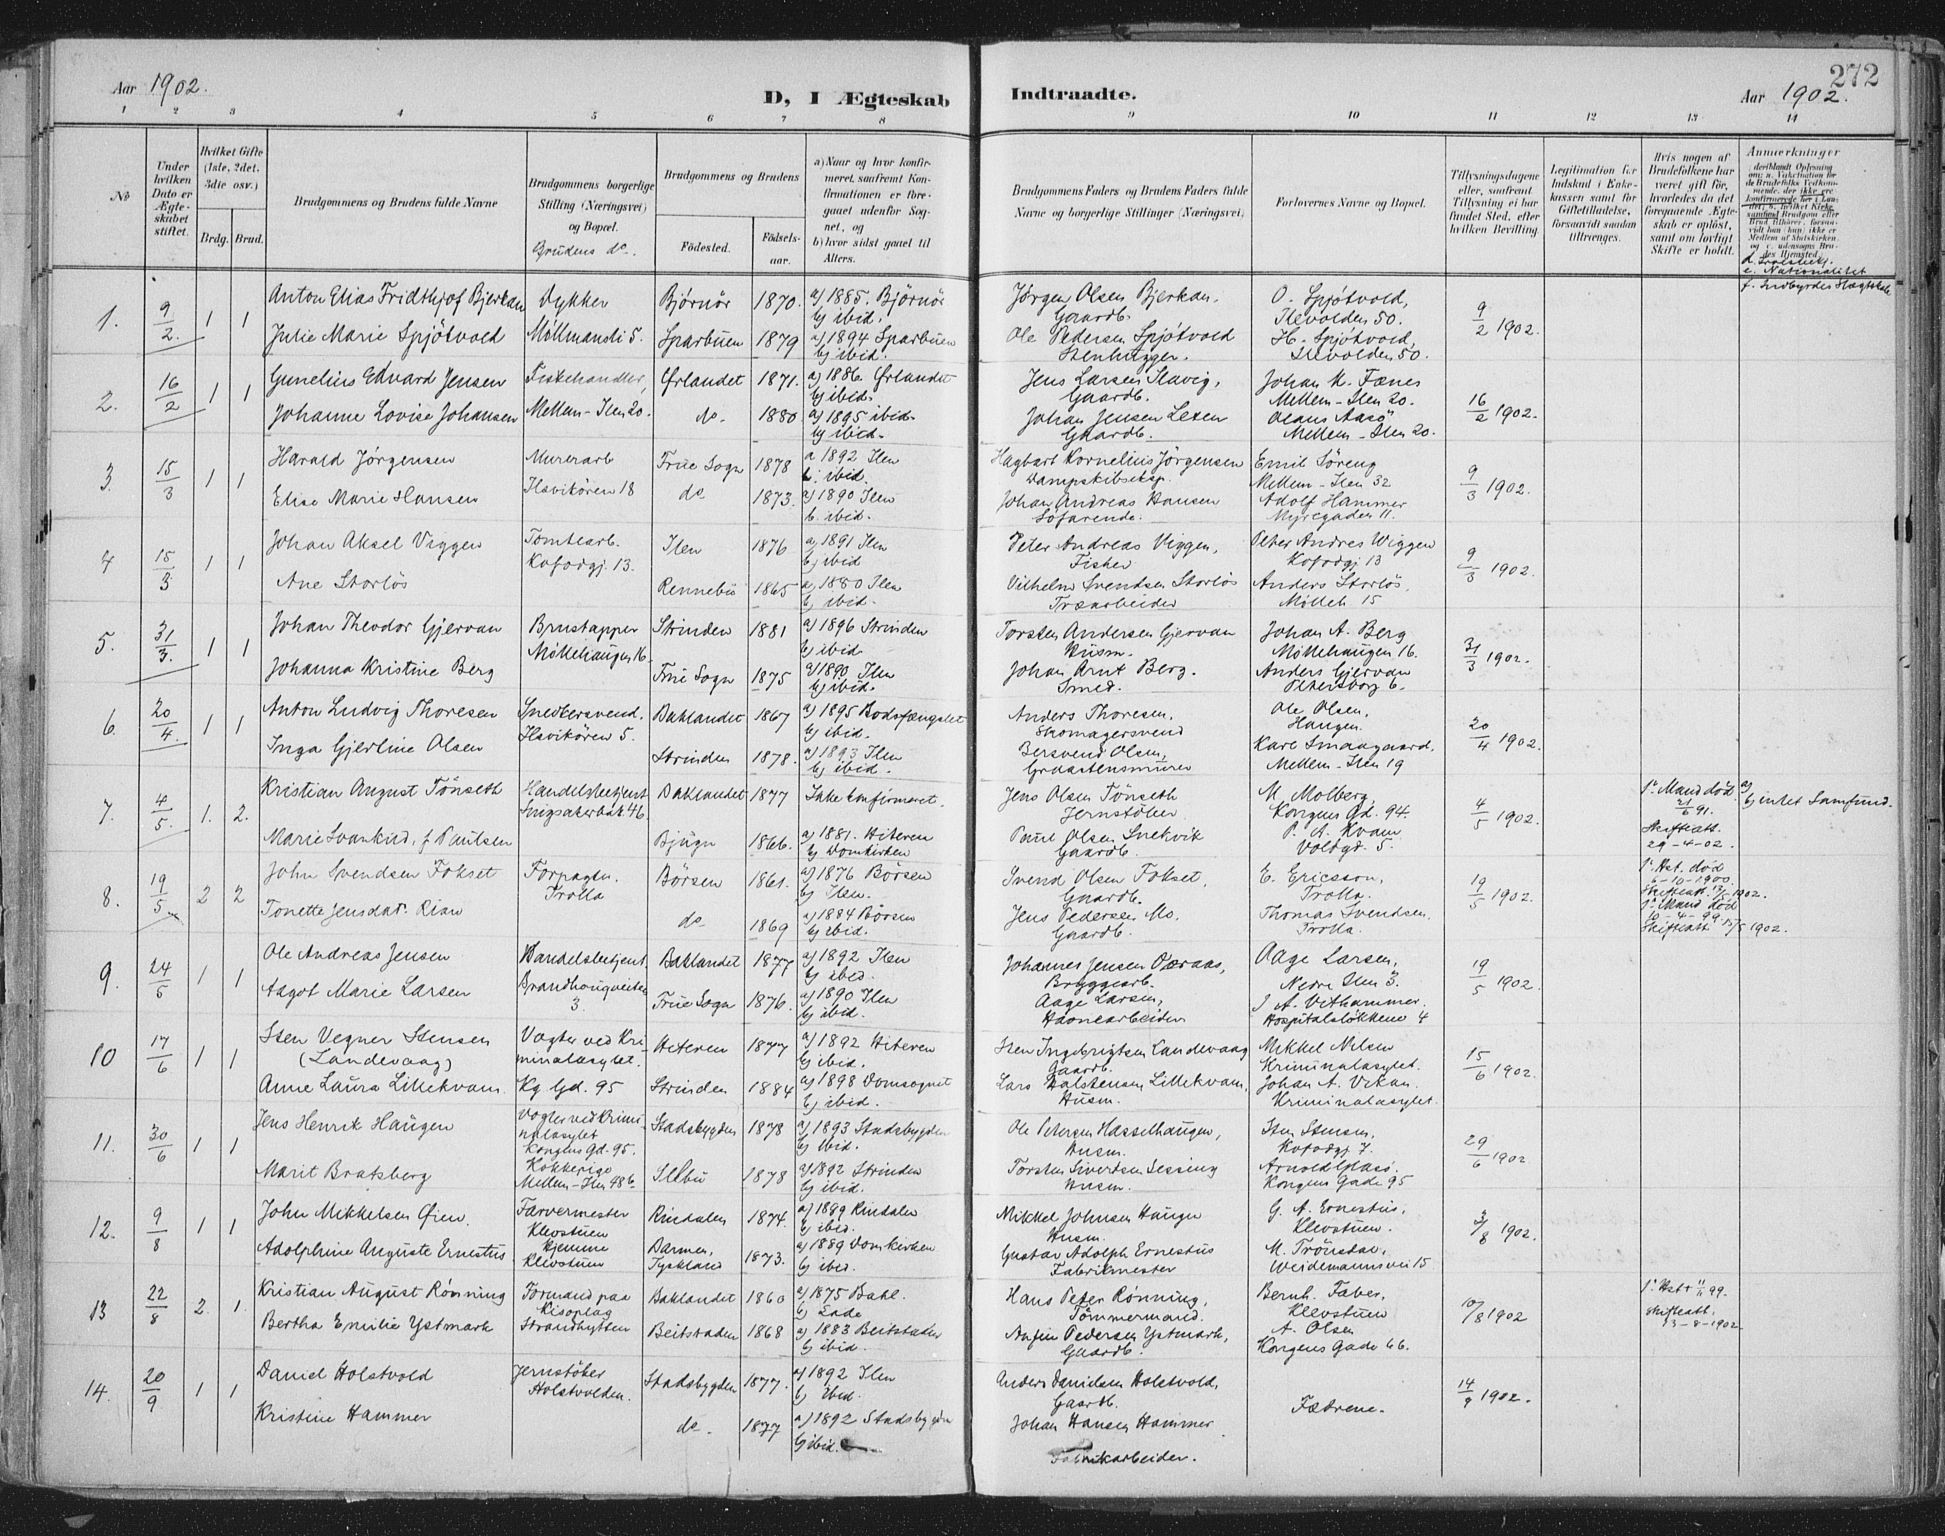 272
Aar 1902.
D, I Ægteskab Indtraadte.
Aar 1902.
1 2 3 4 5 6 7 8 9 10 11 12 13 14
No
Under hvilken Dato er Ægteskabet stiftet.
Hvilket Gifte (1ste, 2det, 3die osv.)
Brdg. Brud.
Brudgommens og Brudens fulde Navne
Brudgommens borgerlige Stilling (Næringsvei) og Bopæl.
Brudens do.
Brudgommens og Brudens
Fødested. Fødselsaar.
a) Naar og hvor konfirmeret, saafremt Konfirmationen er foregaaet udenfor Sognet, og
b) hvor sidst gaaet til Alters.
Brudgommens Faders og Brudens Faders fulde Navne og borgerlige Stillinger (Næringsvei)
Forlovernes Navne og Bopæl.
Tillysningsdagene eller, saafremt Tillysning ei har fundet Sted, efter hvilken Bevilling.
Legitimation for Indskud i Enkekassen samt for Giftetilladelse, forsaavidt saadan tiltrænges.
Hvis nogen af Brudefolkene har været gift før, hvorledes da det foregaaende Ægteskab er opløst, samt om lovligt Skifte er holdt.
Anmærkninger
e. Nationalitet
f. Indbyrdes Slægtskab
1. 9/2. 1 1
Anton Elias Fridthjof Bjerkan Dykker Bjørnør 1870. a) 1885. Bjørnør
b) ibid.
Jørgen Olsen Bjerkan, Gaardb.
O. Spjøtvold, Ilevolden 50.
9/2 1902.
Julie Marie Spjøtvold Møllmandi 5. Sparbuen 1879 a) 1894 Sparbuen
b) ibid.
Ole Pedersen Spjøtvold Stenhugger.
H. Spjøtvold, Ilevolden 50.
2. 16/2 1 1
Gunelius Edvard Jensen Fiskehandler, Ørlandet 1871. a) 1886. Ørlandet
b) ibid.
Jens Larsen Slavig, Gaardb.
Johan K. Fænes Mellem-Ilen 20.
16/2 1902.
Johanne Lovise Johansen Mellem-Ilen 20. do. 1880 a) 1895 ibid.
b) ibid.
Johan Jensen Lexen Gaardb.
Olaus Aasø Mellem-Ilen 20.
3. 15/3 1 1
Harald Jørgensen Murerarb Frue Sogn 1878 a 1892 Ilen
b. ibid.
Hagbart Kornelius Jørgensen Dampskibsexp.
Emil Søreng Mellem-Ilen 32
9/3 1902.
Elise Marie Hansen Ilsvikøren 18 do 1873. a) 1890 Ilen
b. ibid.
Johan Andreas Hansen Søfarende.
Adolf Hammer Myregaden 11.
4 15/3 1 1
Johan Aksel Viggen Tomtearb. Ilen 1876 a) 1891 Ilen
b) ibid
Peter Andreas Viggen, Fisker
Peter Andres Wiggen Kofodgj 13
9/3 1902.
Ane Storløs Kofodgj. 13. Rennebu 1865 a) 1880 Ilen
b) ibid.
Vilhelm Svendsen Storløs Træarbeider
Anders Storløs. Mølleh 15
5. 31/3. 1 1
Johan Theodor Gjervan Brustapper Strinden 1881 a) 1896 Strinden
b) ibid.
Torsten Andersen Gjervan Husm.
Johan A. Berg Møllehaugen 16.
31/3 1902.
Johanna Kristine Berg Møllehaugen 16. Frue Sogn 1875 a) 1890 Ilen
b) ibid.
Johan Arnt Berg. Smed.
Anders Gjervan Petersborg 6.
6. 20/4. 1 1
Anton Ludvig Thoresen Snedkersvend. Baklandet 1867 a) 1895 Bodsfængslet
b) ibid.
Anders Thoresen, Skomagersvend
Ole Olsen, Haugen.
20/4 1902.
Inga Gjerline Olsen Ilsvikøren 5. Strinden 1878. a) 1893 Ilen
b) ibid.
Bersvend Olsen, Graastensmurer
Karl Smaagaard, Mellem-Ilen 19
7. 4/5. 1. 2.
Kristian August Tønseth Handelsbetjent Baklandet 1877 Ikke konfirmeret.
Jens Olsen Tønseth Jernstøber
M. Molberg, Kongens Gd. 94.
4/5 1902.
1ª Mand død 21/6 91. Skifteatt. 29-4-02.
a) b) intet Samfund.
Marie Svankud, f Paulsen Singsakerbak 46. Bjugn 1866. a) 1881. Hiteren
b) Domkirken
Paul Olsen Snekvik Gaardb.
P. A. Kvam Voldgd. 5.
8. 19/5 2 2
John Svendsen Fokset Forpagter. Børsen 1861. a) 1876 Børsen
b) Ilen.
Svend Olsen Fokset, Gaardb.
E. Ericsson, Trolla.
19/5 1902.
1ª Hst. død 6-10-1900. Skifteatt. 13/5 1902.
Tonette Jensdat. Rian Trolla do 1869 a) 1884 Børsen
b) ibid.
Jens Pedersen Mo. Gaardb.
Thomas Svendsen. Trolla.
1ª Mand død 10-4-99. Skifteatt 15/5 1902.
9. 24/5 1 1
Ole Andreas Jensen Handelsbetjent. Baklandet 1877 a) 1892 Ilen
b) ibid.
Johannes Jensen Oxaas, Bryggearb.
Aage Larsen, Nedre Ilen 3.
19/5 1902.
Aagot Marie Larsen 3. Frue Sogn 1876. a) 1890 Ilen
b) ibid.
Aage Larsen, Havnearbeider
J. A. Vethammer. Hospitalsløkkene 4
10 17/6 1 1
Sten Vegner Stensen (Landevaag) Vogter ved Kriminalasylet. Hiteren 1877 a) 1892 Hiteren
b) ibid.
Sten Ingebrigtsen Landevaag Gaardb.
Mikkel Nilsen Kriminalasylet.
15/6 1902.
Anne Laura Lillekvam. Kg Gd. 95 Strinden 1884 a) 1898 Domsognet
b) ibid.
Lars Halstensen Lillekvam, Husm.
Johan A. Vikan. Kriminalasylet.
11. 30/6 1 1
Jens Henrik Haugen Vogter ved Kriminalasylet Kongens Gd. 95. Stadsbygden 1878 a) 1893 Stadsbygden
b) ibid.
Ole Petersen Hasselhaugen, Husm.
Sten Stensen, Kofodgj 7.
29/6 1902
Marit Bratsberg Kokkepige Mellem-Ilen 48 b Selbu 1878 a) 1892 Strinden
b) ibid.
Torsten Sivertsen Sessing Husm.
Kongens Gade 95
12. 9/8 1 1
John Mikkelsen Øien. Farvermester Klevstuen Rindalen 1874. a) 1889 Rindalen
b) ibid.
Mikkel Johnsen Haugen Husm.
G. A. Ernestus, Klevstuen.
3/8 1902.
Adolphine Auguste Ernestus. hjemme Klevstuen Barmen, Tyskland 1873. a) 1889 Domkirken
b) ibid.
Gustav Adolph Ernestus Fabrikmester
M. Trønsdal, Weidemannsvei 15
13 22/8 2. 1.
Kristian August Rønning Formand paa Kisoplag Baklandet 1860 a) 1875 Bakl.
b) Lade
Hans Peter Rønning, Tømmermand.
Bernh. Faber, Klevstuen
10/8 1902
1ª Hst † 11/11 99. Skifteatt. 13-8-1902.
Bertha Emilie Ystmark Strandhytten Beitstaden 1868 a) 1883 Beitstaden
b) ibid.
Anfin Pedersen Ystmark, Gaardb.
A. Olsen Kongens Gade 66.
14. 20/9 1 1
Daniel Holstvold Jernstøber Holstvolden. Stadsbygden 1877. a) 1892 Ilen
b) ibid.
Anders Danielsen Holstvold, Gaardb.
Fædrene.
14/9 1902.
Kristine Hammer do. 1877 a) 1892 Stadsbygden
b) ibid.
Johan Hansen Hammer Fabrikarbeider.